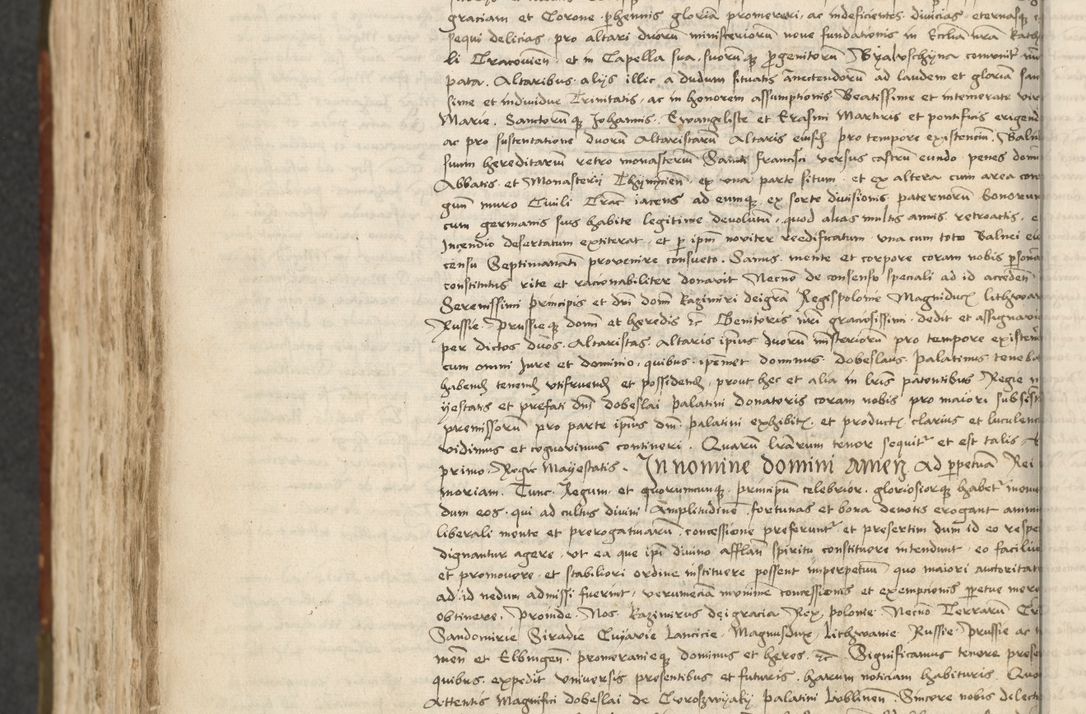 graciam et Corone phennis gloriā promereri ac indeficientes divicias eternasq
sequi delicias pro altari duorū ministeriorū nove fundationis in Ecclia nrā
li Cracovien et in Capella sua suorūq progenitorū Byaloschyna
pata Altaribus alijs illic a dudum situatis annectendorū ad laudem et gloriā san
sime et individue Trinitatis ac in honorem assumptionis Beatissime et intemerate vir
Marie Sanctorūq Johannis Ewangeliste et Erasmi Martiris et pontificis erigend
ac pro sustentatione duorū Altaristarū Altaris eiusd pro tempore existenciū Balne
suum hereditariū retro monasteriū Sancti Francisci versus castrū eundo penes dom
Abbatis et Monasterij Thyniecien ex una parte situm et ex altera cum area con
guū muro Civili Crac iacens ad eumq ex sorte divisionis paternorū bonorum
cum germanis suis habite legitime devolutū quod alias multis annis retroactis
Incendio desertatum extiterat et p ipm noviter reedificatum una cum toto Balnei
censu Septimanati provenire consueto Sanus mente et corpore coram nobis psona
constitutus rite et racionabiliter donavit Necnō de consensu speciali ad id acceden
Serenissimi principis et dni domi Kazimiri deigrā Regispolonie Magniducz lithwan
Russie Prussieq domī et heredis Genitoris nrī graciosissimi dedit et assignavi
per dictos duos Altaristas Altaris ipius duorū misteriorū pro tempore existen
cum omni Jure et dominio quibus ipemet dominus dobeslaus Palatinus teneba
habend tenend utifruend et possidend prout hec et alia in lris patentibus Regie
iestatis et prefati dni dobeslai palatini donatoris coram nobis pro maiori subsist
premissorū pro parte ipius dni palatini exhibit et product clarius et luculen
vidimus et cognovimus contineri Quarū lrarum tenor sequit et est talis
primo Regie Maiestatis In nomine domini amen Ad ppetuā Rei
moriam Tunc Regum et quorumcunq principū celebrior gloriosiorq habet
dum eos qui ad cultus divini Amplitudinē fortunas et bona devotis erogant animi
liberali mente et prerogativarū concessione preferunt et presertim dum id eo respe
dignantur agere ut ea que ipi divino afflati spiritu constituere intendunt eo facilius
et promovere et stabiliori ordine instituere possent imperpetuū quo maiori autoritat
ad id nedum admissi fuerint verumeciā munime concessionis et exempcionis ppetue mere
obtinere Proinde Nos Kazimirus dei gracia Rex polonie Necnō Terrarū Cr
Sandomirie Siradie Cuyavie Lancicie Magnusdux Lithwanie Russie Prussie ac
men et Elbingen pomeranieq dominus et heres Significamus tenore prese
quibus expedit universis presentibus et futuris harum noticiam habituris Quo
Attentis Magnifici dobeslai de palatini lublinen Sincere nobis delecti